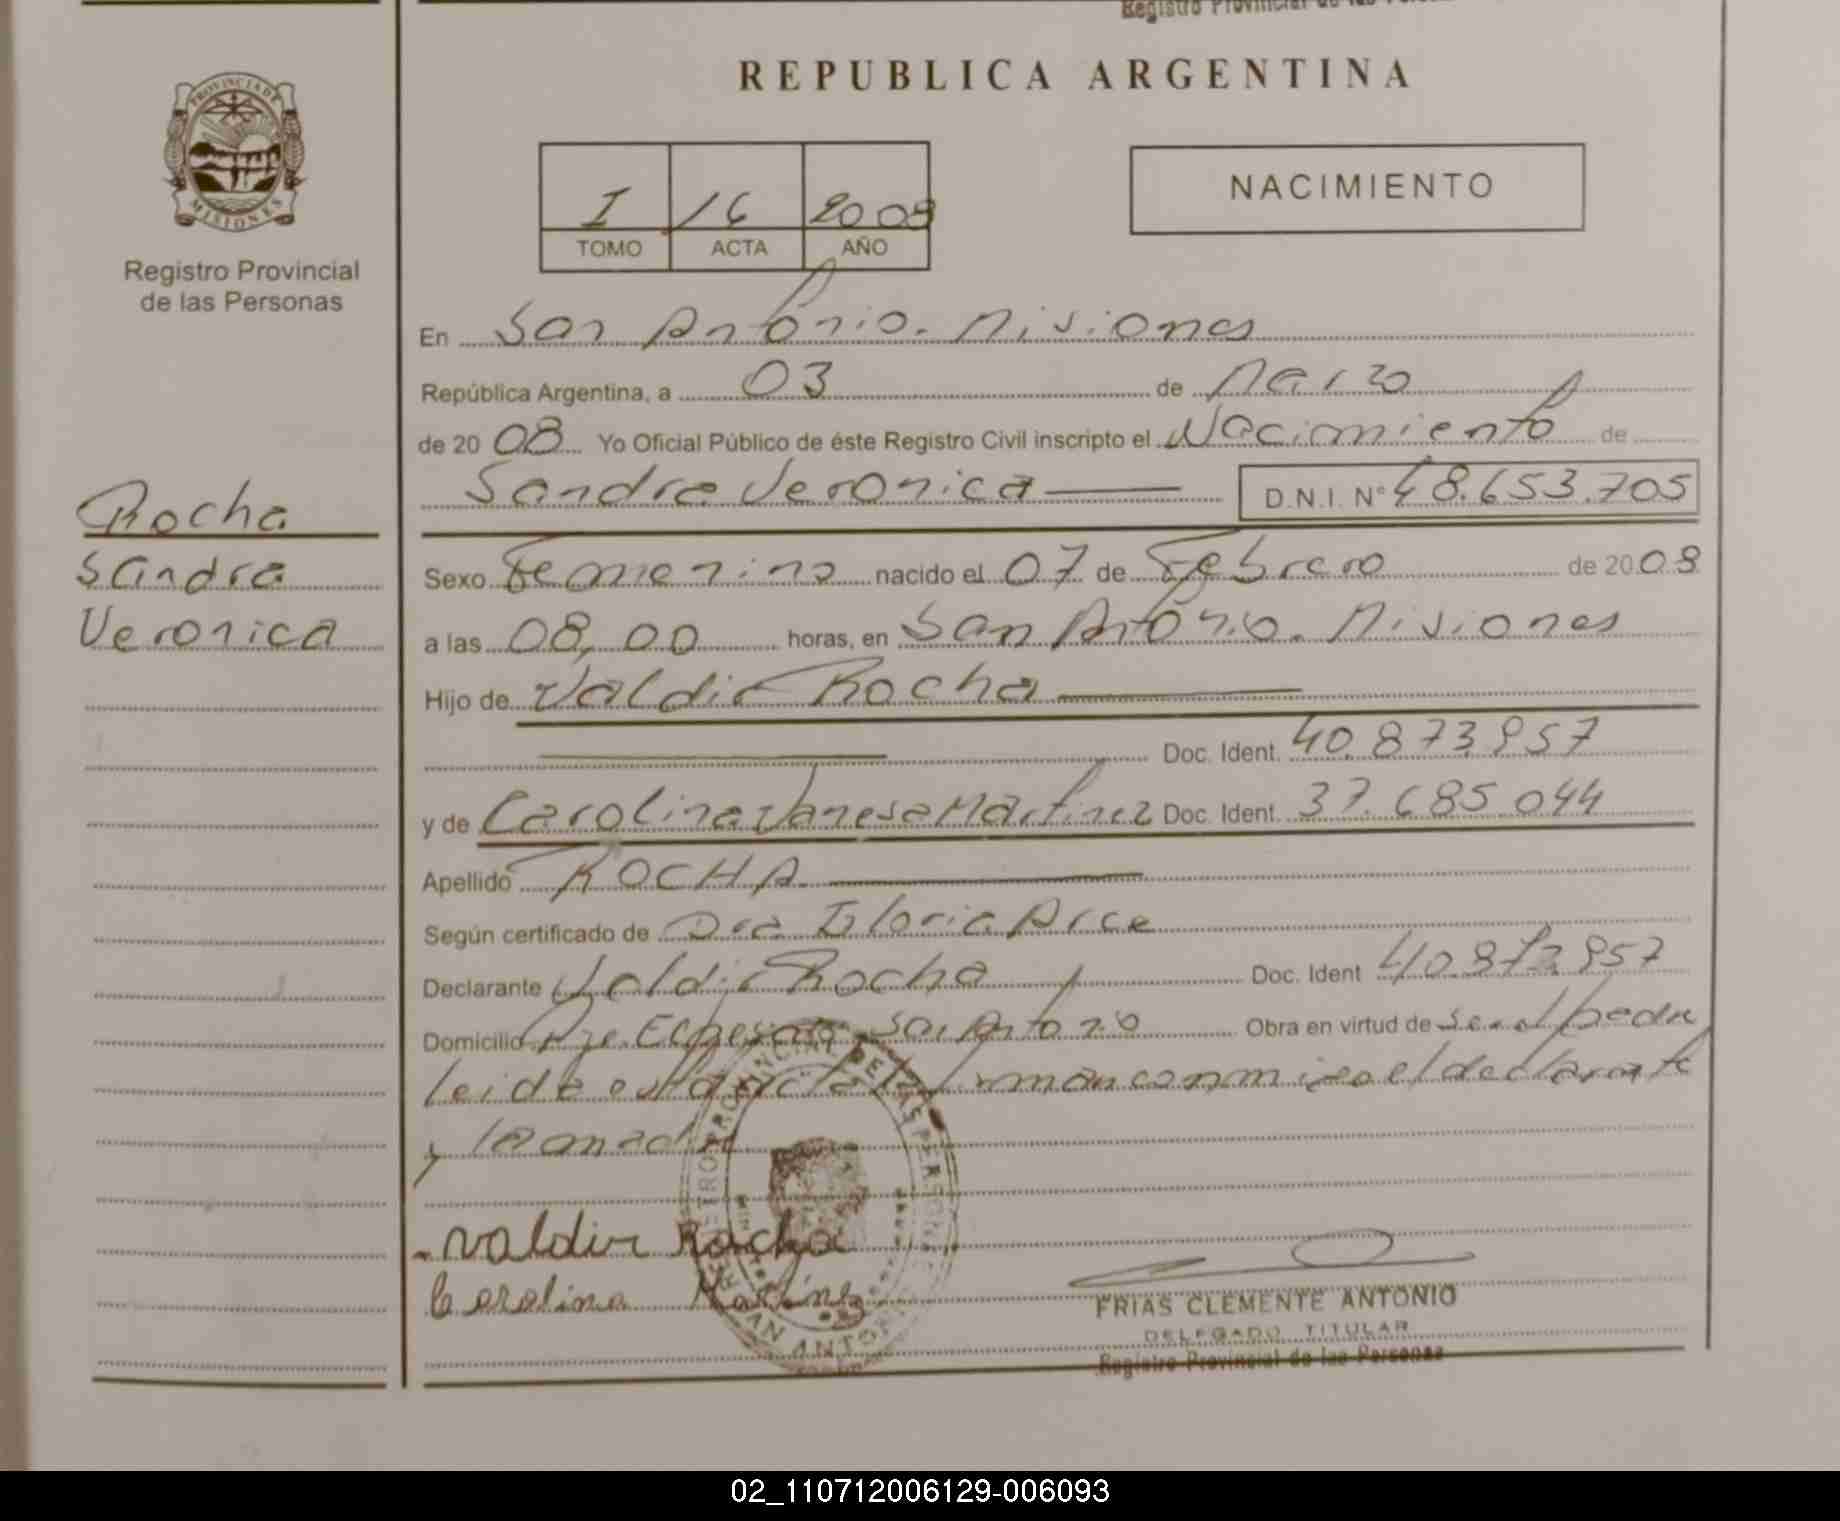 Registro Provincial de las Persona
REPUBLICA ARGENTINA
PROVINCIA DE
MISIONES
Registro Provincial
de las Personas
I 16 2008
TOMO ACTA AÑO
NACIMIENTO
En San Antonio. Misiones
República Argentina, a 03 de Marzo
de 20 08 Yo Oficial Público de éste Registro Civil inscripto el Nacimiento de
Sandra Veronica D.N.I. N° 48.653.705
Rocha
Sandra
Veronica
Sexo Femenino nacido el 07 de Febrero de 20 08
a las 08,00 horas, en San Antonio. Misiones
Hijo de Valdir Rocha
Doc. Ident. 40.873.957
y de Carolina Vanesa Martinez Doc. Ident. 37.685.044
Apellido ROCHA
Según certificado de Dra Gloria Arce
Declarante Valdir Rocha Doc. Ident 40.873.957
Domicilio San Antonio Obra en virtud de ser el padre
leida el acta la firman conmigo el declarante
y la madre
Valdir Rocha
Carolina Martinez
FRIAS CLEMENTE ANTONIO
DELEGADO TITULAR
Registro Provincial de las Personas
02_110712006129-006093